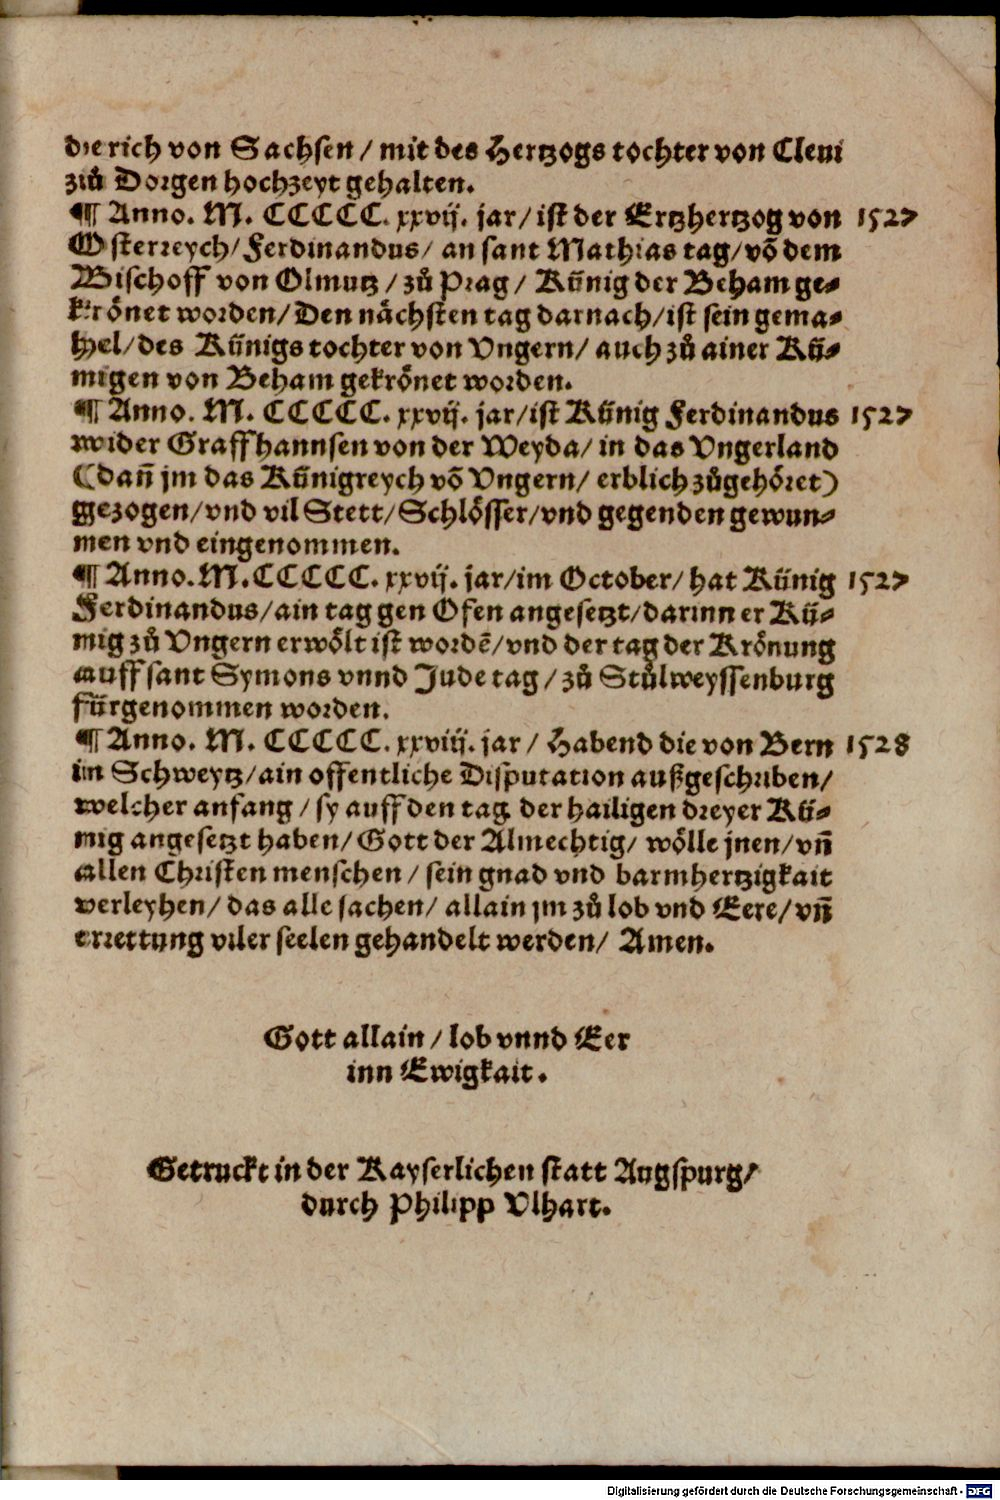 derich von Sachsen / mit des Hertzogs tochter von Cleui
zů Dorgen hochzeyt gehalten.
¶ Anno. M. CCCCC. xxvij. jar / ist der Ertzhertzog von 1527
Osterreych / Ferdinandus / an sant Mathias tag / võ dem
Bischoff von Olmutz / zů Prag / Künig der Beham ge⸗
krönet worden / Den nächsten tag darnach / ist sein gema⸗
hel / des Künigs tochter von Vngern / auch zů ainer Kü⸗
nigen von Beham gekrönet worden.
¶ Anno. M. CCCCC. xxvij. jar / ist Künig Ferdinandus 1527
wider Graff hannsen von der Weyda / in das Vngerland
(dañ jm das Künigreych võ Vngern / erblich zůgehöret)
gezogen / vnd vil Stett / Schlösser / vnd gegenden gewun⸗
nen vnd eingenommen.
¶ Anno. M. CCCCC. xxvij. jar / im October / hat Künig 1527
Ferdinandus / ain tag gen Ofen angesetzt / darinn er Kü⸗
nig zů Vngern erwölt ist wordẽ / vnd der tag der Krönung
auff sant Symons vnnd Jude tag / zů Stůlweyssenburg
fürgenommen worden.
¶ Anno. M. CCCCC. xxviij. jar / Habend die von Bern 1528
im Schweytz / ain offentliche Disputation außgeschriben /
welcher anfang / sy auff den tag der hailigen dreyer Kü⸗
nig angesetzt haben / Gott der Almechtig / wölle jnen / vñ
allen Christen menschen / sein gnad vnd barmhertzigkait
verleyhen / das alle sachen / allain jm zů lob vnd Eere / vñ
errettung viler seelen gehandelt werden / Amen.
Gott allain / lob vnnd Eer
inn Ewigkait.
Getruckt in der Kayserlichen statt Augspurg /
durch Philipp Vlhart.
Digitalisierung gefördert durch die Deutsche Forschungsgemeinschaft - DFG